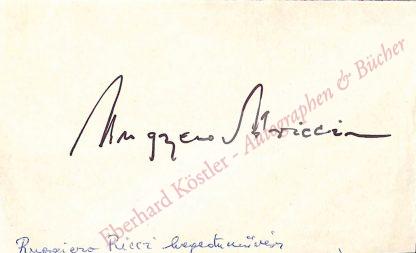 Ruggiero Ricci
Eberhard Köstler - Autographen & Bücher
Ruggiero Ricci hegedűművész